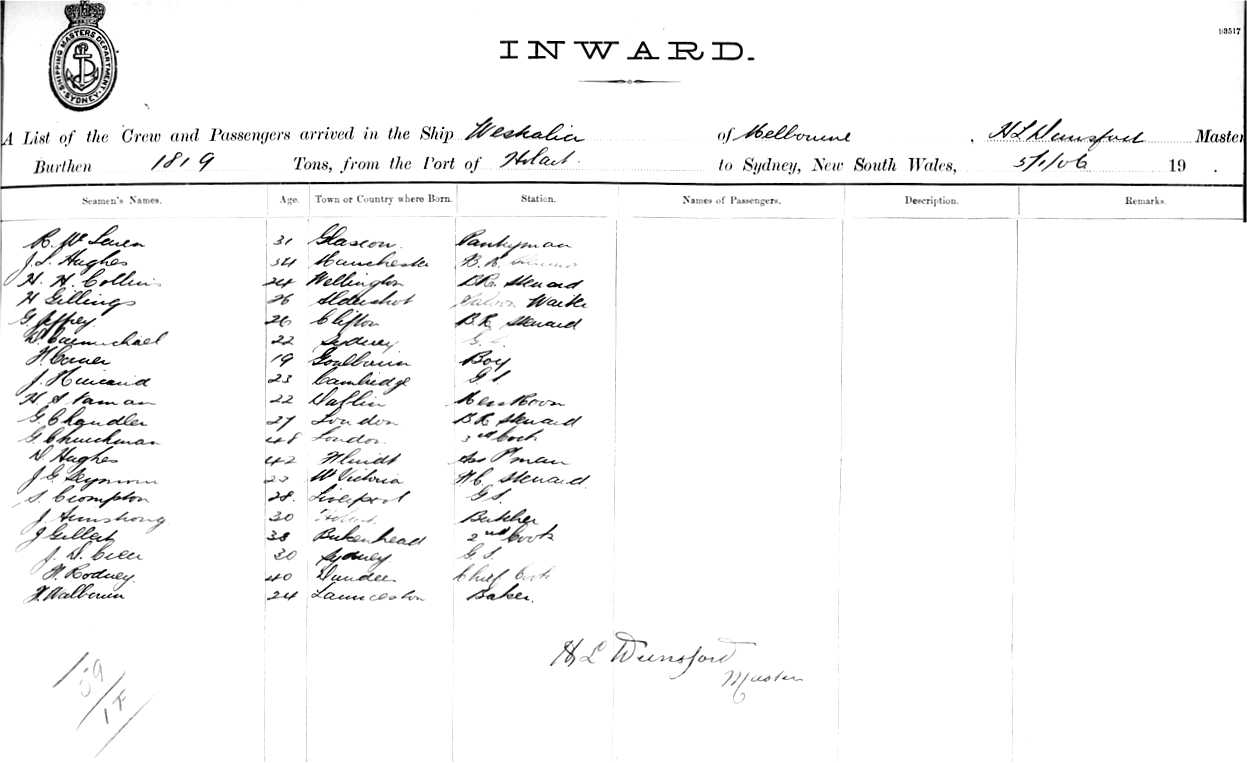 SHIPPING MASTERS DEPARTMENT
SYDNEY
13517
INWARD.
A List of the Crew and Passengers arrived in the Ship Westralia of Melbourne , H L Dunsford Master
Burthen 1819 Tons, from the Port of Hobart to Sydney, New South Wales, 5/1/06 19 .
Seamen's Names. Age. Town or Country where Born. Station. Names of Passengers. Description. Remarks.
31 Glascow Pantryman
J. L. Hughes 34 Manchester B. R.
H. H. Collins 24 Wellington B.R. Steward
H Gillings 26 Aldershot Saloon Waiter
G Jeffrey 26 Clifton B.R. Steward
D Carmichael 22 Sydney G. S.
19 Goulburn Boy
J. 23 Cambridge G S.
H. S. 22 Mess Room
G. Chandler 27 London B R Steward
G. Churchman 48 London 3rd Cook
D. Hughes 42 P'man
J. G. Seymour Victoria Steward
S. Crompton 28 Liverpool G S.
J. Armstrong 30 Hobart Butcher
J Gillett 38 Birkenhead 2nd Cook
J. D. 30 Sydney G. S.
Rodney 40 Dundee Chief Cook
24 Launceston Baker.
H L Dunsford
Master
59